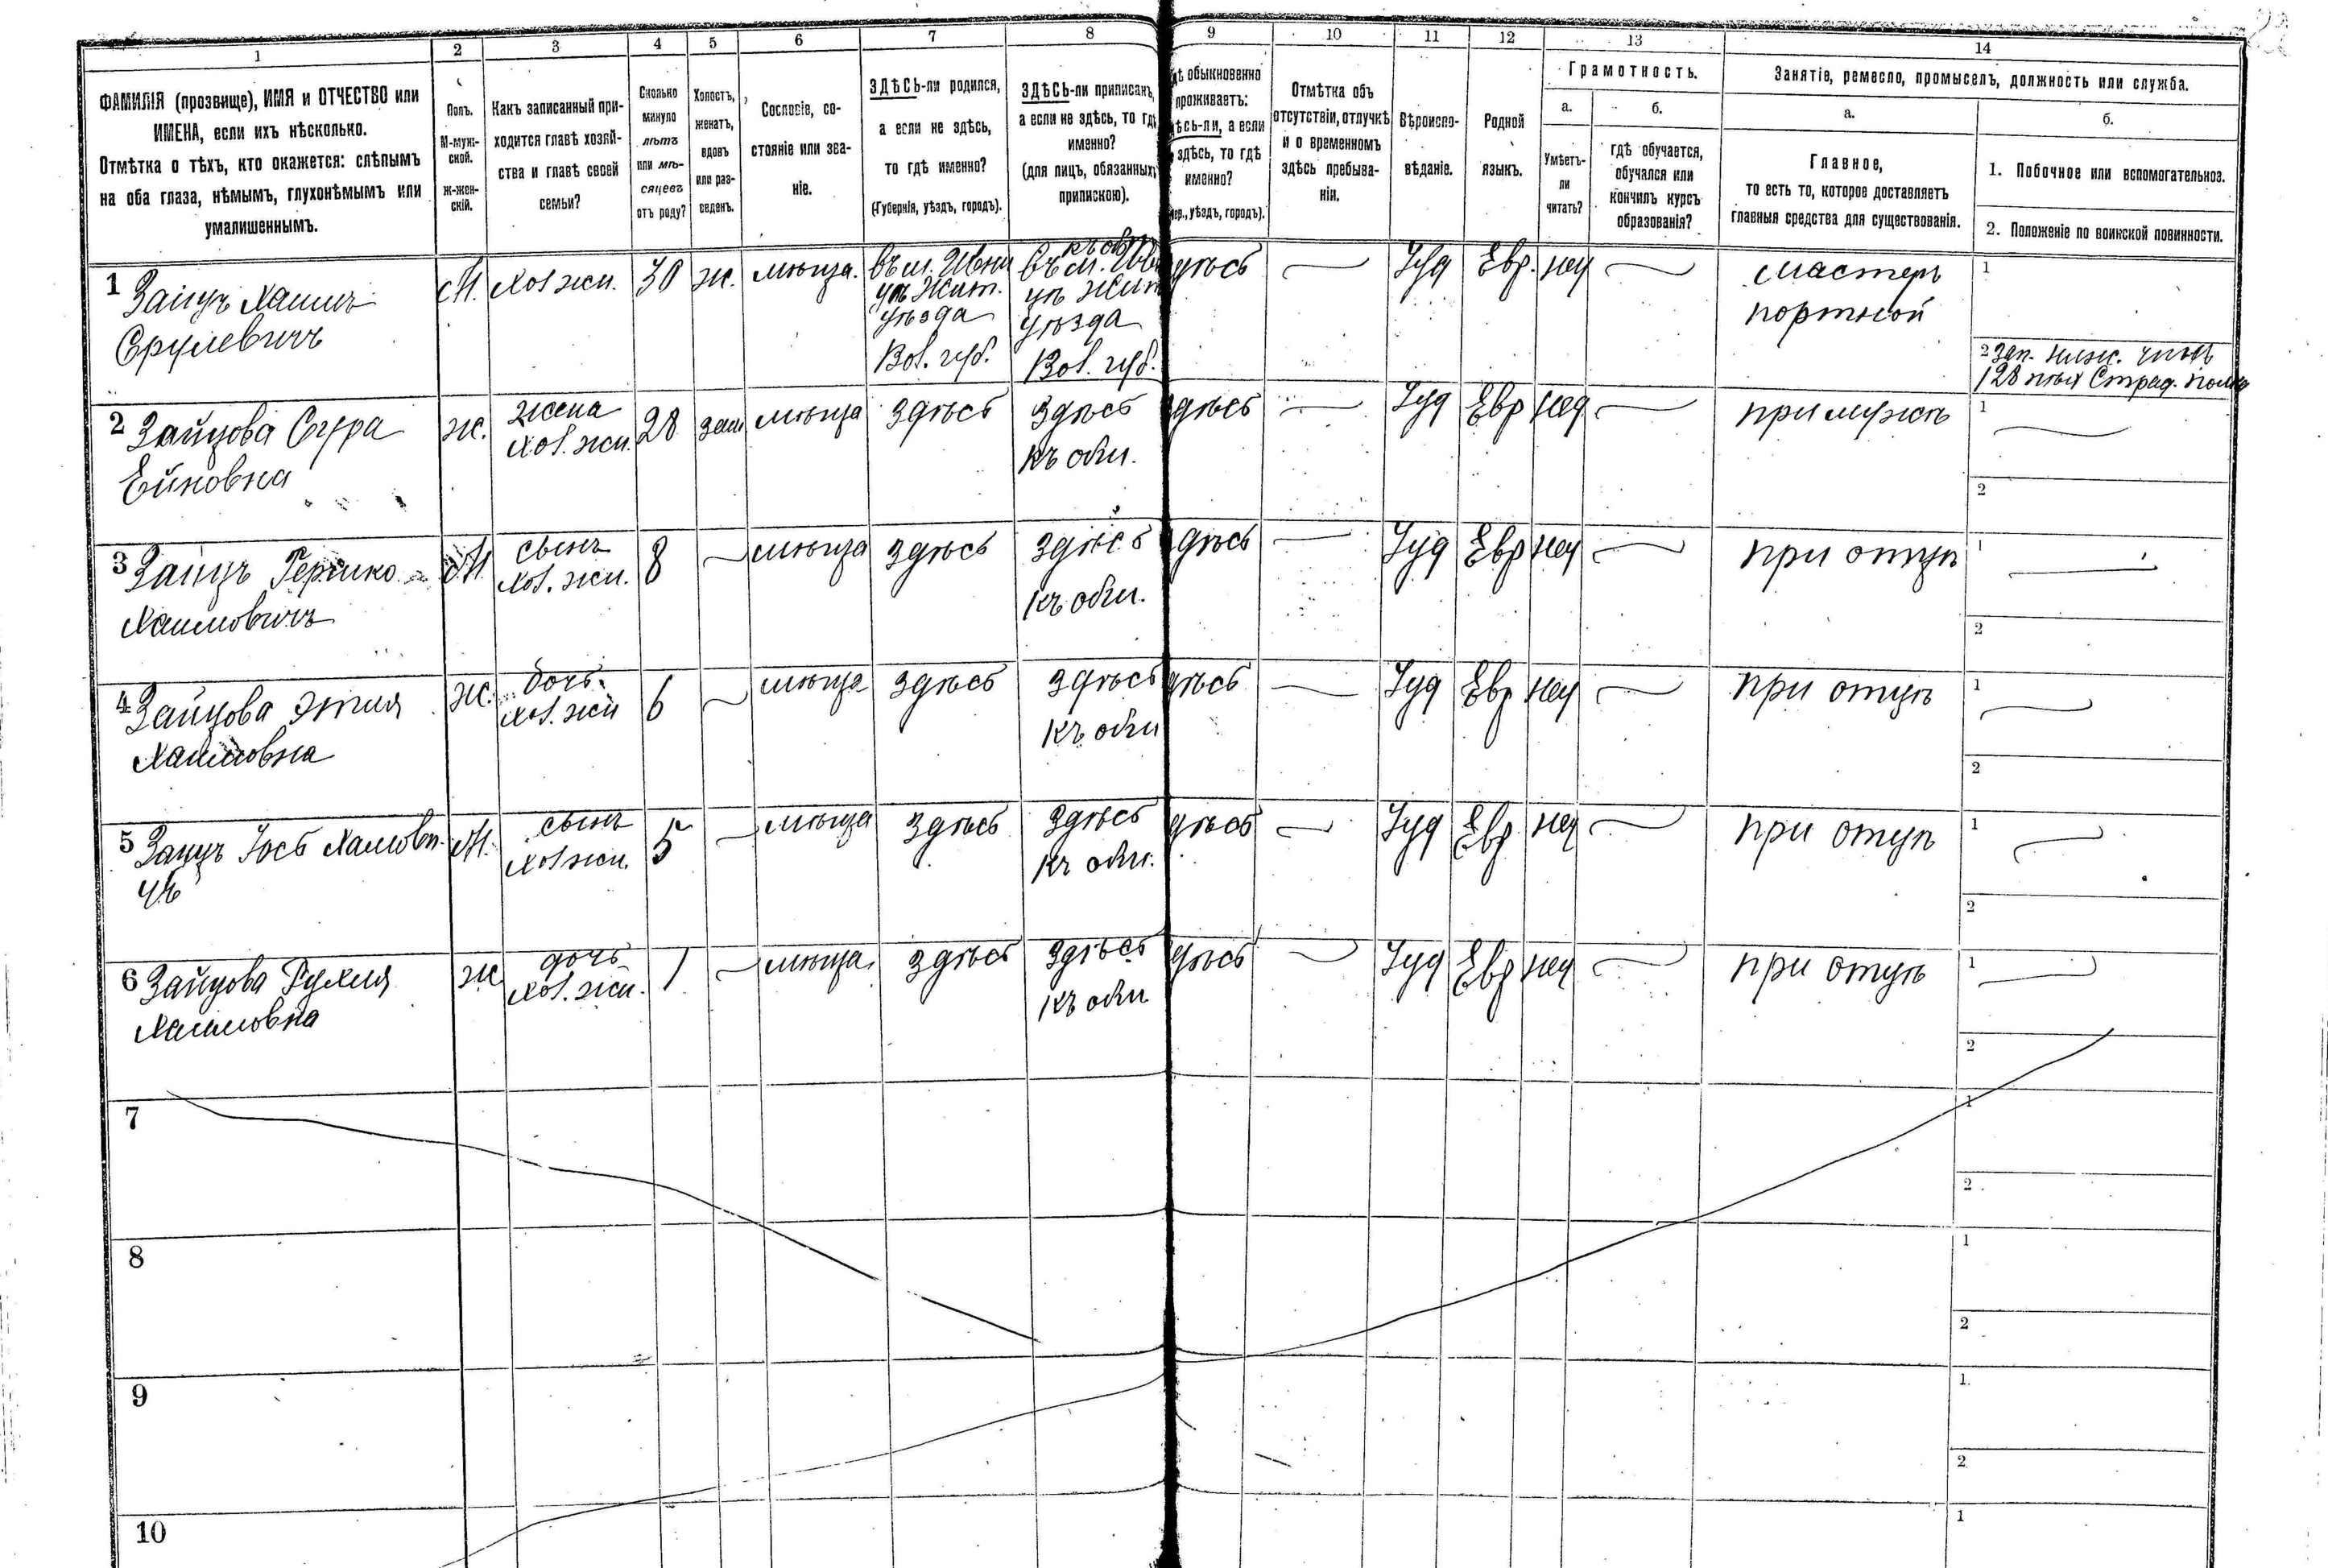 1
2
3
4
5
6
7
8
9
10
11
12
13
14
ФАМИЛІЯ (прозвище), ИМЯ и ОТЧЕСТВО или
ИМЕНА, если ихъ нѣсколько.
Отмѣтка о тѣхъ, кто окажется: слѣпымъ
на оба глаза, нѣмымъ, глухонѣмымъ или
умалишеннымъ.
Полъ.
М-муж-
ской.
Ж-жен-
скій.
Какъ записанный при-
ходится главѣ хозяй-
ства и главѣ своей
семьи?
Сколько
минуло
лѣтъ
или мѣ-
сяцевъ
отъ роду?
Холостъ,
женатъ,
вдовъ
или раз-
веденъ.
Сословіе, со-
стояніе или зва-
ніе.
ЗДѢСЬ-ли родился,
а если не здѣсь,
то гдѣ именно?
(Губернія, уѣздъ, городъ).
ЗДѢСЬ-ли приписанъ,
а если не здѣсь, то гдѣ
именно?
(для лицъ, обязанныхъ
припискою).
дѣ обыкновенно
проживаетъ:
ѣсь-ли, а если
здѣсь, то гдѣ
именно?
уѣздъ, городъ).
Отмѣтка объ
отсутствіи, отлучкѣ
и о временномъ
здѣсь пребыва-
ніи.
Вѣроиспо-
вѣданіе.
Родной
языкъ.
Грамотность.
а.
б.
Умѣетъ-
ли
читать?
гдѣ обучается,
обучался или
кончилъ курсъ
образованія?
Занятіе, ремесло, промыселъ, должность или служба.
а.
б.
Главное,
то есть то, которое доставляетъ
главныя средства для существованія.
1. Побочное или вспомогательное.
2. Положеніе по воинской повинности.
1 Заицъ Хаимъ
Срулевичъ
М.
хоз жи.
30
ж.
мѣща.
въ м.
Жит.
уѣзда
Вол. губ.
въ м.
Жит
уѣзда
Вол. губ.
дѣсь
Іуд
Евр.
неу
мастеръ
портной
1
2 зап. нижн. чинъ
128
2 Зайцова Сура
Ейновна
ж.
жена
хоз. жи.
28
зам
мѣща
здѣсь
здѣсь
къ общ.
здѣсь
Іуд
Евр
неу
при мужѣ
1
2
3 Заицъ Гершко
Хаимовичъ
М
сынъ
хоз. жи.
8
мѣща
здѣсь
здѣсь
къ общ.
здѣсь
Іуд
Евр
неу
при отцѣ
1
2
4 Зайцова Этля
Хаимовна
ж.
дочь
хоз. жи
6
мѣща
здѣсь
здѣсь
къ общ
дѣсь
Іуд
Евр
неу
при отцѣ
1
2
5 Заицъ Іось Хаимови-
чъ
М.
сынъ
хоз жи.
5
мѣща
здѣсь
здѣсь
къ общ.
дѣсь
Іуд
Евр
неу
при отцѣ
1
2
6 Зайцова Рухля
Хаимовна
ж
дочь
хоз. жи.
1
мѣща
здѣсь
здѣсь
къ общ
дѣсь
Іуд
Евр
неу
при отцѣ
1
2
7
1
2
8
1
2
9
1.
2
10
1